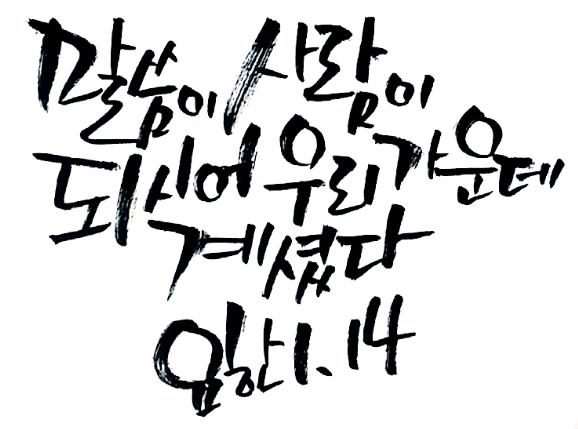 말씀이 사람이
되시어 우리 가운데
계셨다
요한 1. 14